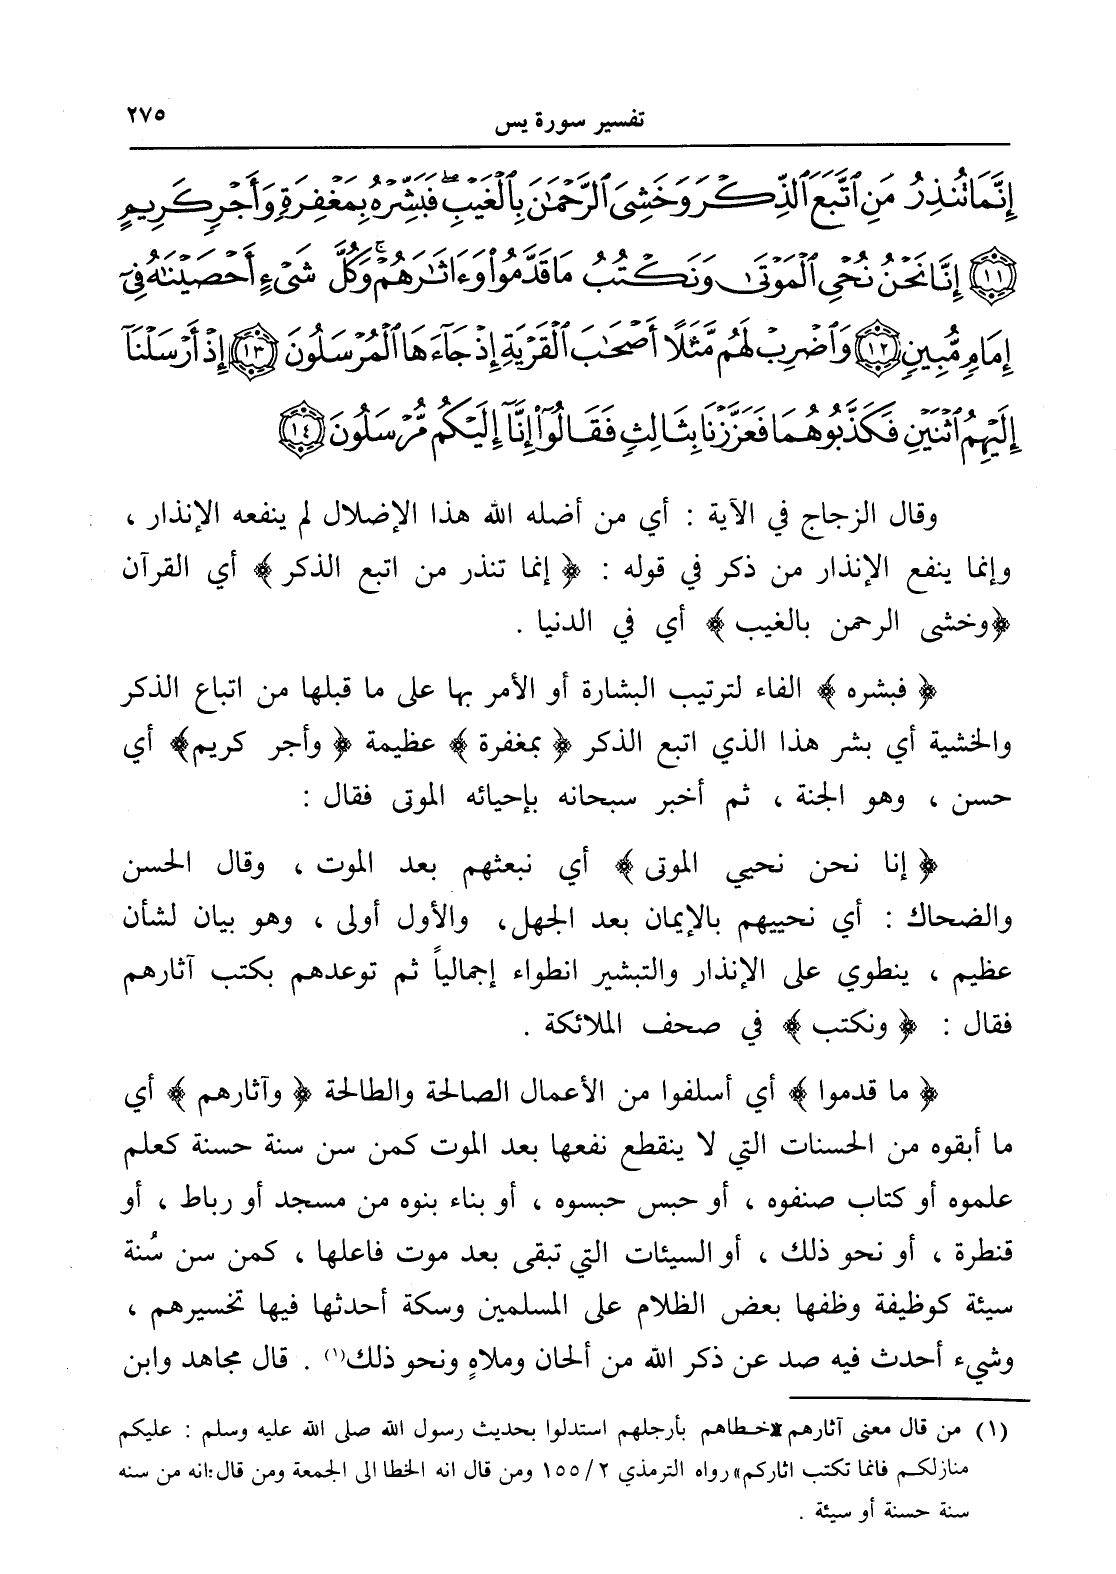 تفسير سورة يس ٢٧٥
إِنَّمَا تُنذِرُ مَنِ ٱتَّبَعَ ٱلذِّكْرَ وَخَشِىَ ٱلرَّحْمَٰنَ بِٱلْغَيْبِ ۖ فَبَشِّرْهُ بِمَغْفِرَةٍ وَأَجْرٍ كَرِيمٍ
١١ إِنَّا نَحْنُ نُحْىِ ٱلْمَوْتَىٰ وَنَكْتُبُ مَا قَدَّمُوا۟ وَءَاثَٰرَهُمْ ۚ وَكُلَّ شَىْءٍ أَحْصَيْنَٰهُ فِىٓ
إِمَامٍ مُّبِينٍ ١٢ وَٱضْرِبْ لَهُم مَّثَلًا أَصْحَٰبَ ٱلْقَرْيَةِ إِذْ جَآءَهَا ٱلْمُرْسَلُونَ ١٣ إِذْ أَرْسَلْنَآ
إِلَيْهِمُ ٱثْنَيْنِ فَكَذَّبُوهُمَا فَعَزَّزْنَا بِثَالِثٍ فَقَالُوٓا۟ إِنَّآ إِلَيْكُم مُّرْسَلُونَ ١٤
وقال الزجاج في الآية : أي من أضله الله هذا الإضلال لم ينفعه الإنذار ،
وإنما ينفع الإنذار من ذكر في قوله : ﴿ إنما تنذر من اتبع الذكر ﴾ أي القرآن
﴿وخشى الرحمن بالغيب ﴾ أي في الدنيا .
﴿ فبشره ﴾ الفاء لترتيب البشارة أو الأمر بها على ما قبلها من اتباع الذكر
والخشية أي بشر هذا الذي اتبع الذكر ﴿ بمغفرة ﴾ عظيمة ﴿ وأجر كريم﴾ أي
حسن ، وهو الجنة ، ثم أخبر سبحانه بإحيائه الموتى فقال :
﴿ إنا نحن نحيي الموتى ﴾ أي نبعثهم بعد الموت ، وقال الحسن
والضحاك : أي نحييهم بالإيمان بعد الجهل، والأول أولى ، وهو بيان لشأن
عظيم ، ينطوي على الإنذار والتبشير انطواء إجمالياً ثم توعدهم بكتب آثارهم
فقال : ﴿ ونكتب ﴾ في صحف الملائكة .
﴿ ما قدموا ﴾ أي أسلفوا من الأعمال الصالحة والطالحة ﴿ وآثارهم ﴾ أي
ما أبقوه من الحسنات التي لا ينقطع نفعها بعد الموت كمن سن سنة حسنة كعلم
علموه أو كتاب صنفوه ، أو حبس حبسوه ، أو بناء بنوه من مسجد أو رباط ، أو
قنطرة ، أو نحو ذلك ، أو السيئات التي تبقى بعد موت فاعلها ، كمن سن سُنة
سيئة كوظيفة وظفها بعض الظلام على المسلمين وسكة أحدثها فيها تخسيرهم ،
وشيء أحدث فيه صد عن ذكر الله من ألحان وملاهٍ ونحو ذلك(١) . قال مجاهد وابن
(١) من قال معنى آثارهم خطاهم بأرجلهم استدلوا بحديث رسول الله صلى الله عليه وسلم : عليكم
منازلكم فانما تكتب اثاركم» رواه الترمذي ١٥٥/٢ ومن قال انه الخطا الى الجمعة ومن قال:انه من سنه
سنة حسنة أو سيئة .